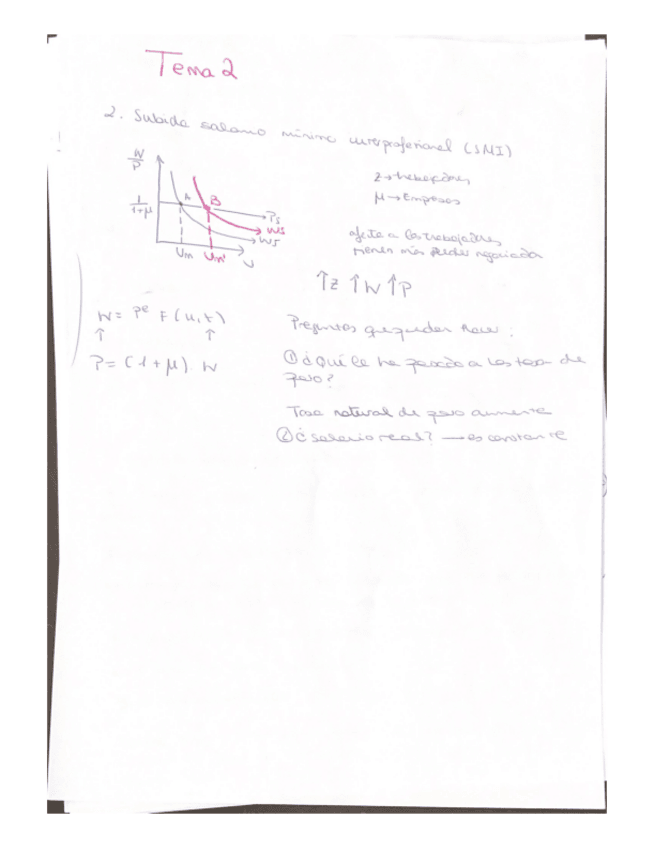 Tema 2
2. Subida salario mínimo interprofesional (SMI)
W/P
1/1+μ
A
B
Ps
Ws
Ws
Un
Un'
U
z → trabajadores
μ → Empresas
afecta a los trabajadores,
tienen más poder negociador
↑z ↑W ↑P
W = Pe F(u, z)
↑ ↑
P = (1 + μ) W
Preguntas que pueden hacer:
① ¿Qué le ha pasado a las tasa de
paro?
Tasa natural de paro aumenta
② ¿salario real? → es constante